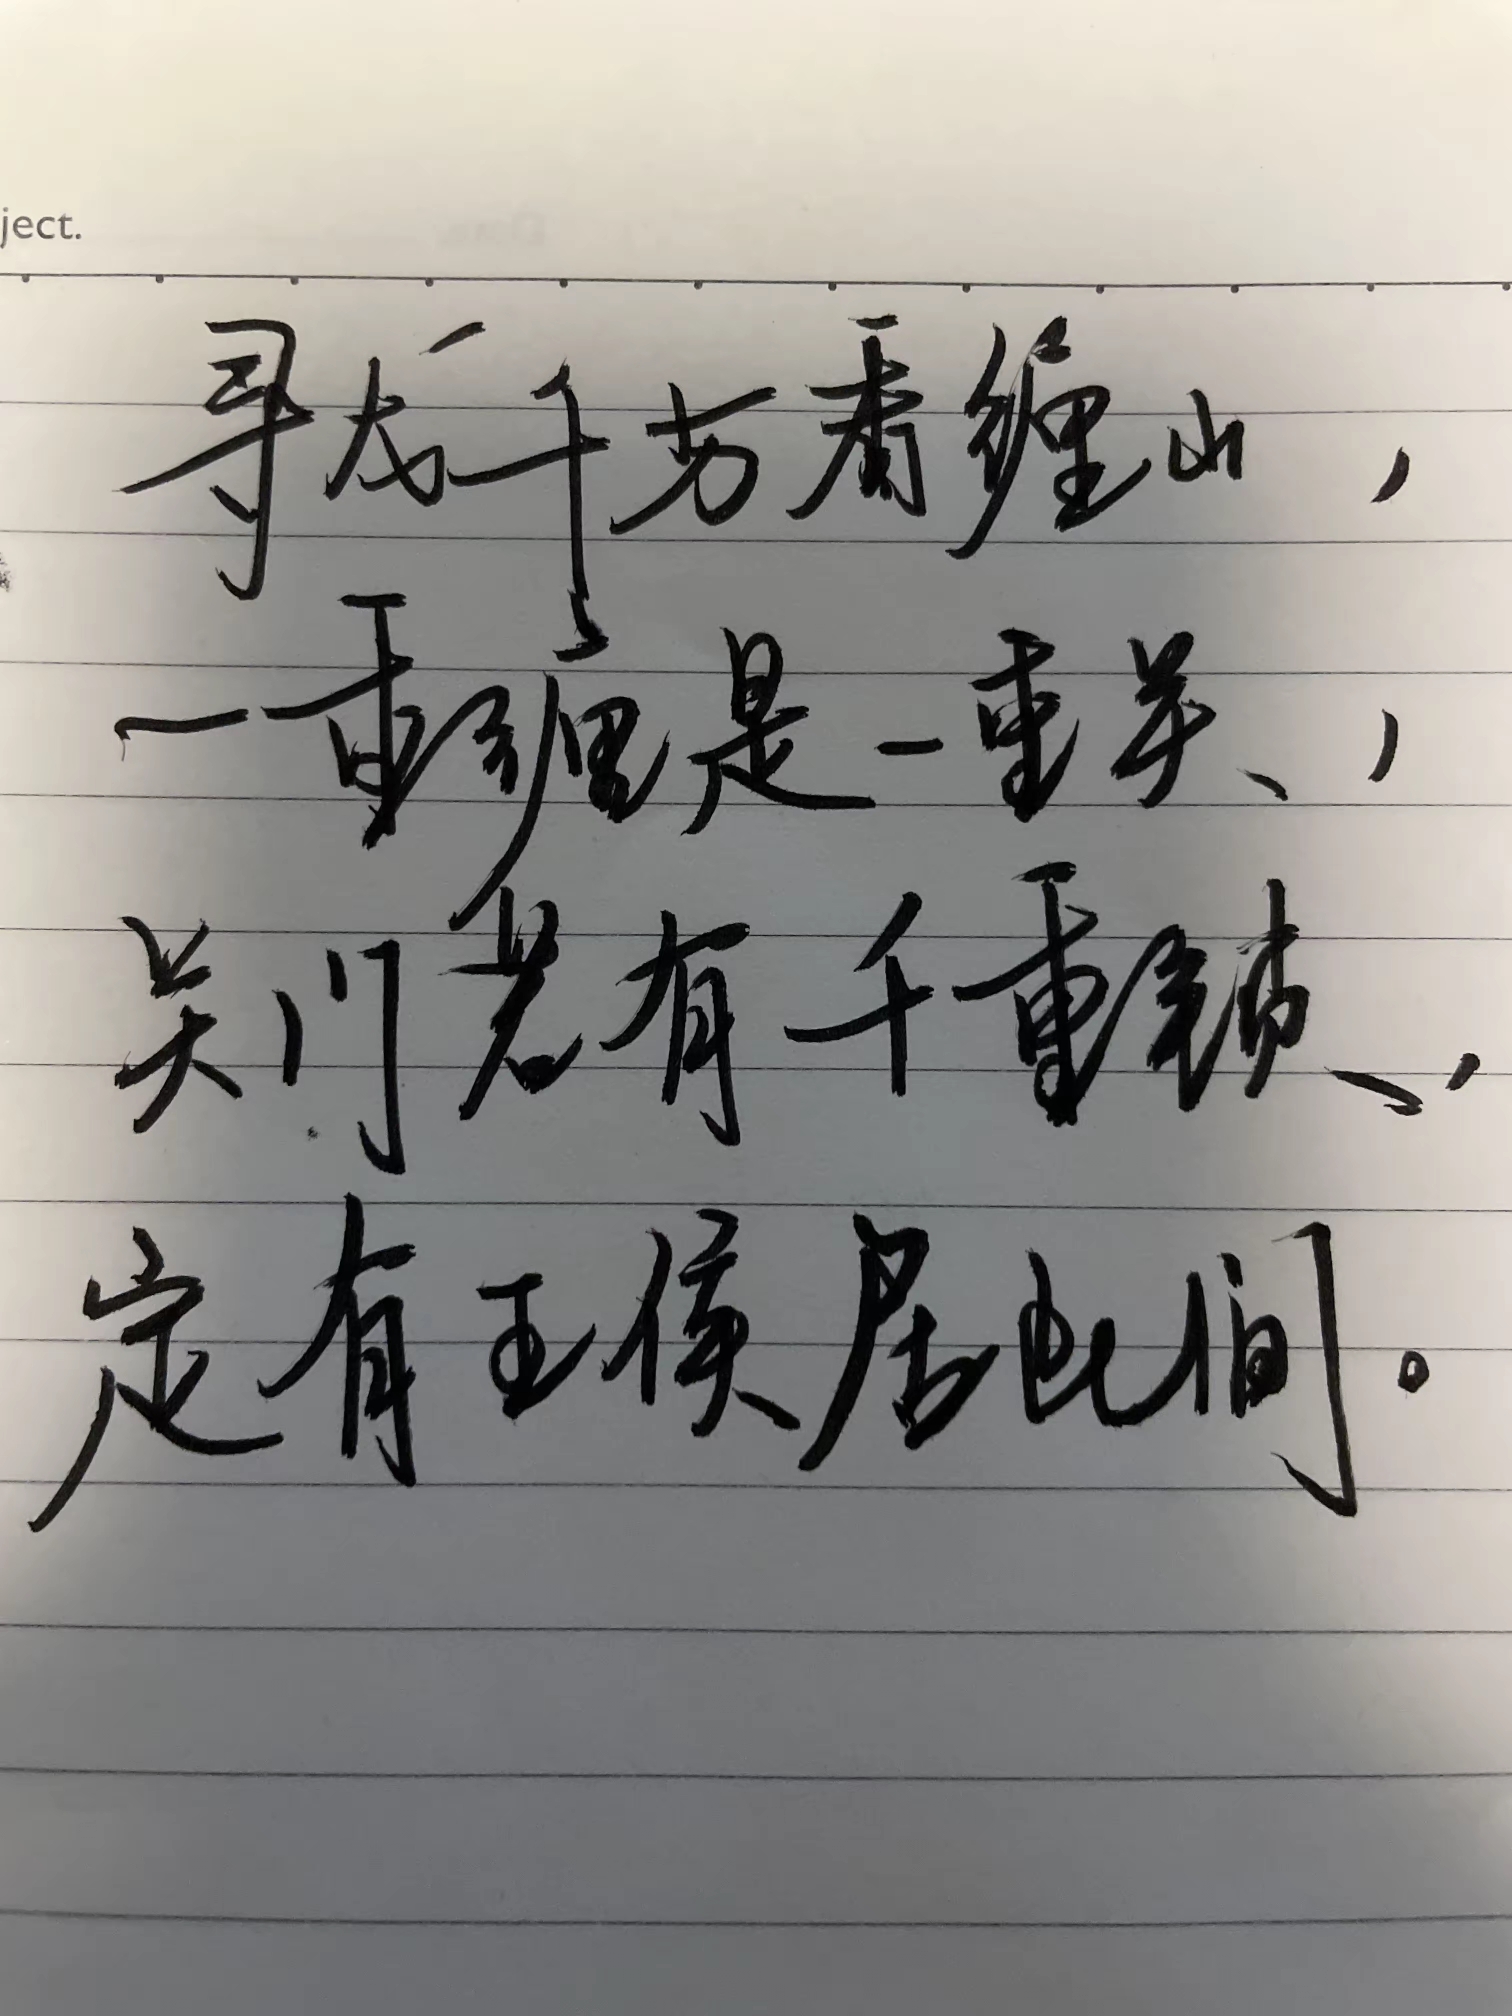 ject.
寻龙千万看缠山，
一重缠是一重关，
关门若有千重锁，
定有王侯居此间。